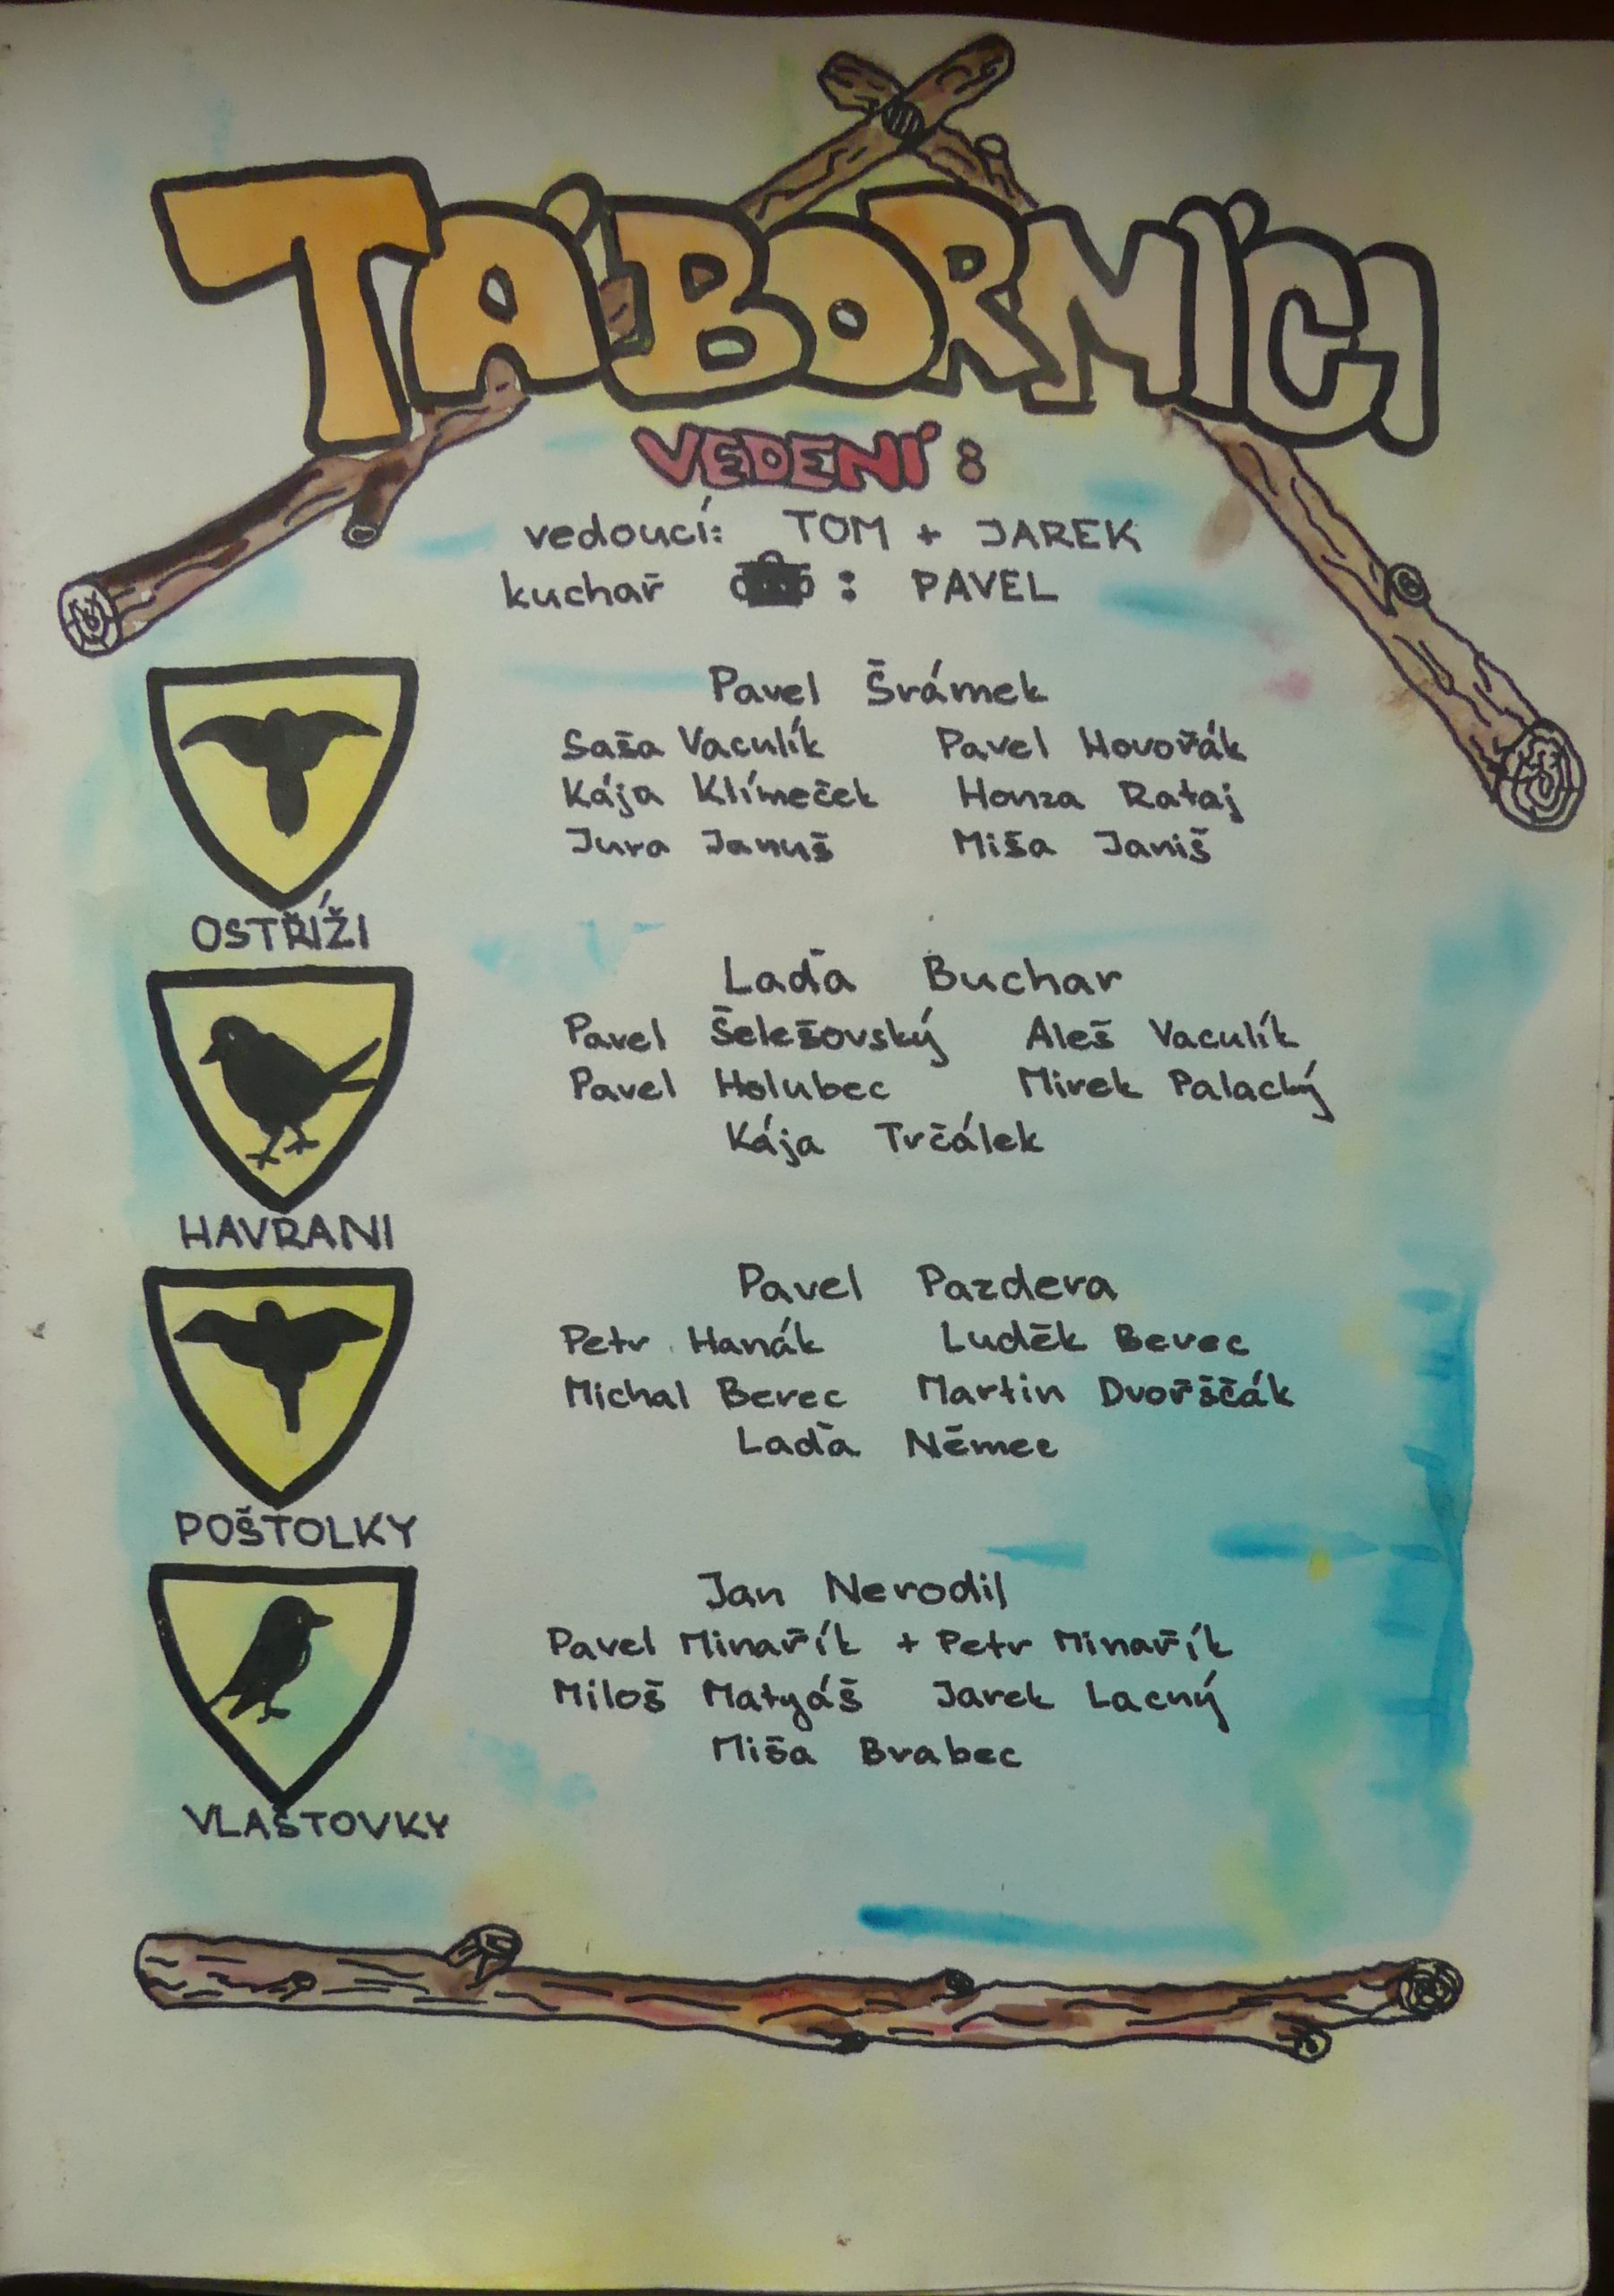 TÁBORNÍCI
VEDENÍ:
vedoucí: TOM + JAREK
kuchař : PAVEL
Pavel Šrámek
Saša Vaculík Pavel Hovořák
Kája Klímeček Honza Rataj
Jura Januš Miša Janiš
OSTŘÍŽI
Laďa Buchar
Pavel Šelešovský Aleš Vaculík
Pavel Holubec Mirek Palacký
Kája Trčálek
HAVRANI
Pavel Pazdera
Petr Hanák Luděk Berec
Michal Berec Martin Dvořščák
Laďa Němec
POŠTOLKY
Jan Nerodil
Pavel Minařík + Petr Minařík
Miloš Matyáš Jarek Lacný
Miša Brabec
VLAŠTOVKY